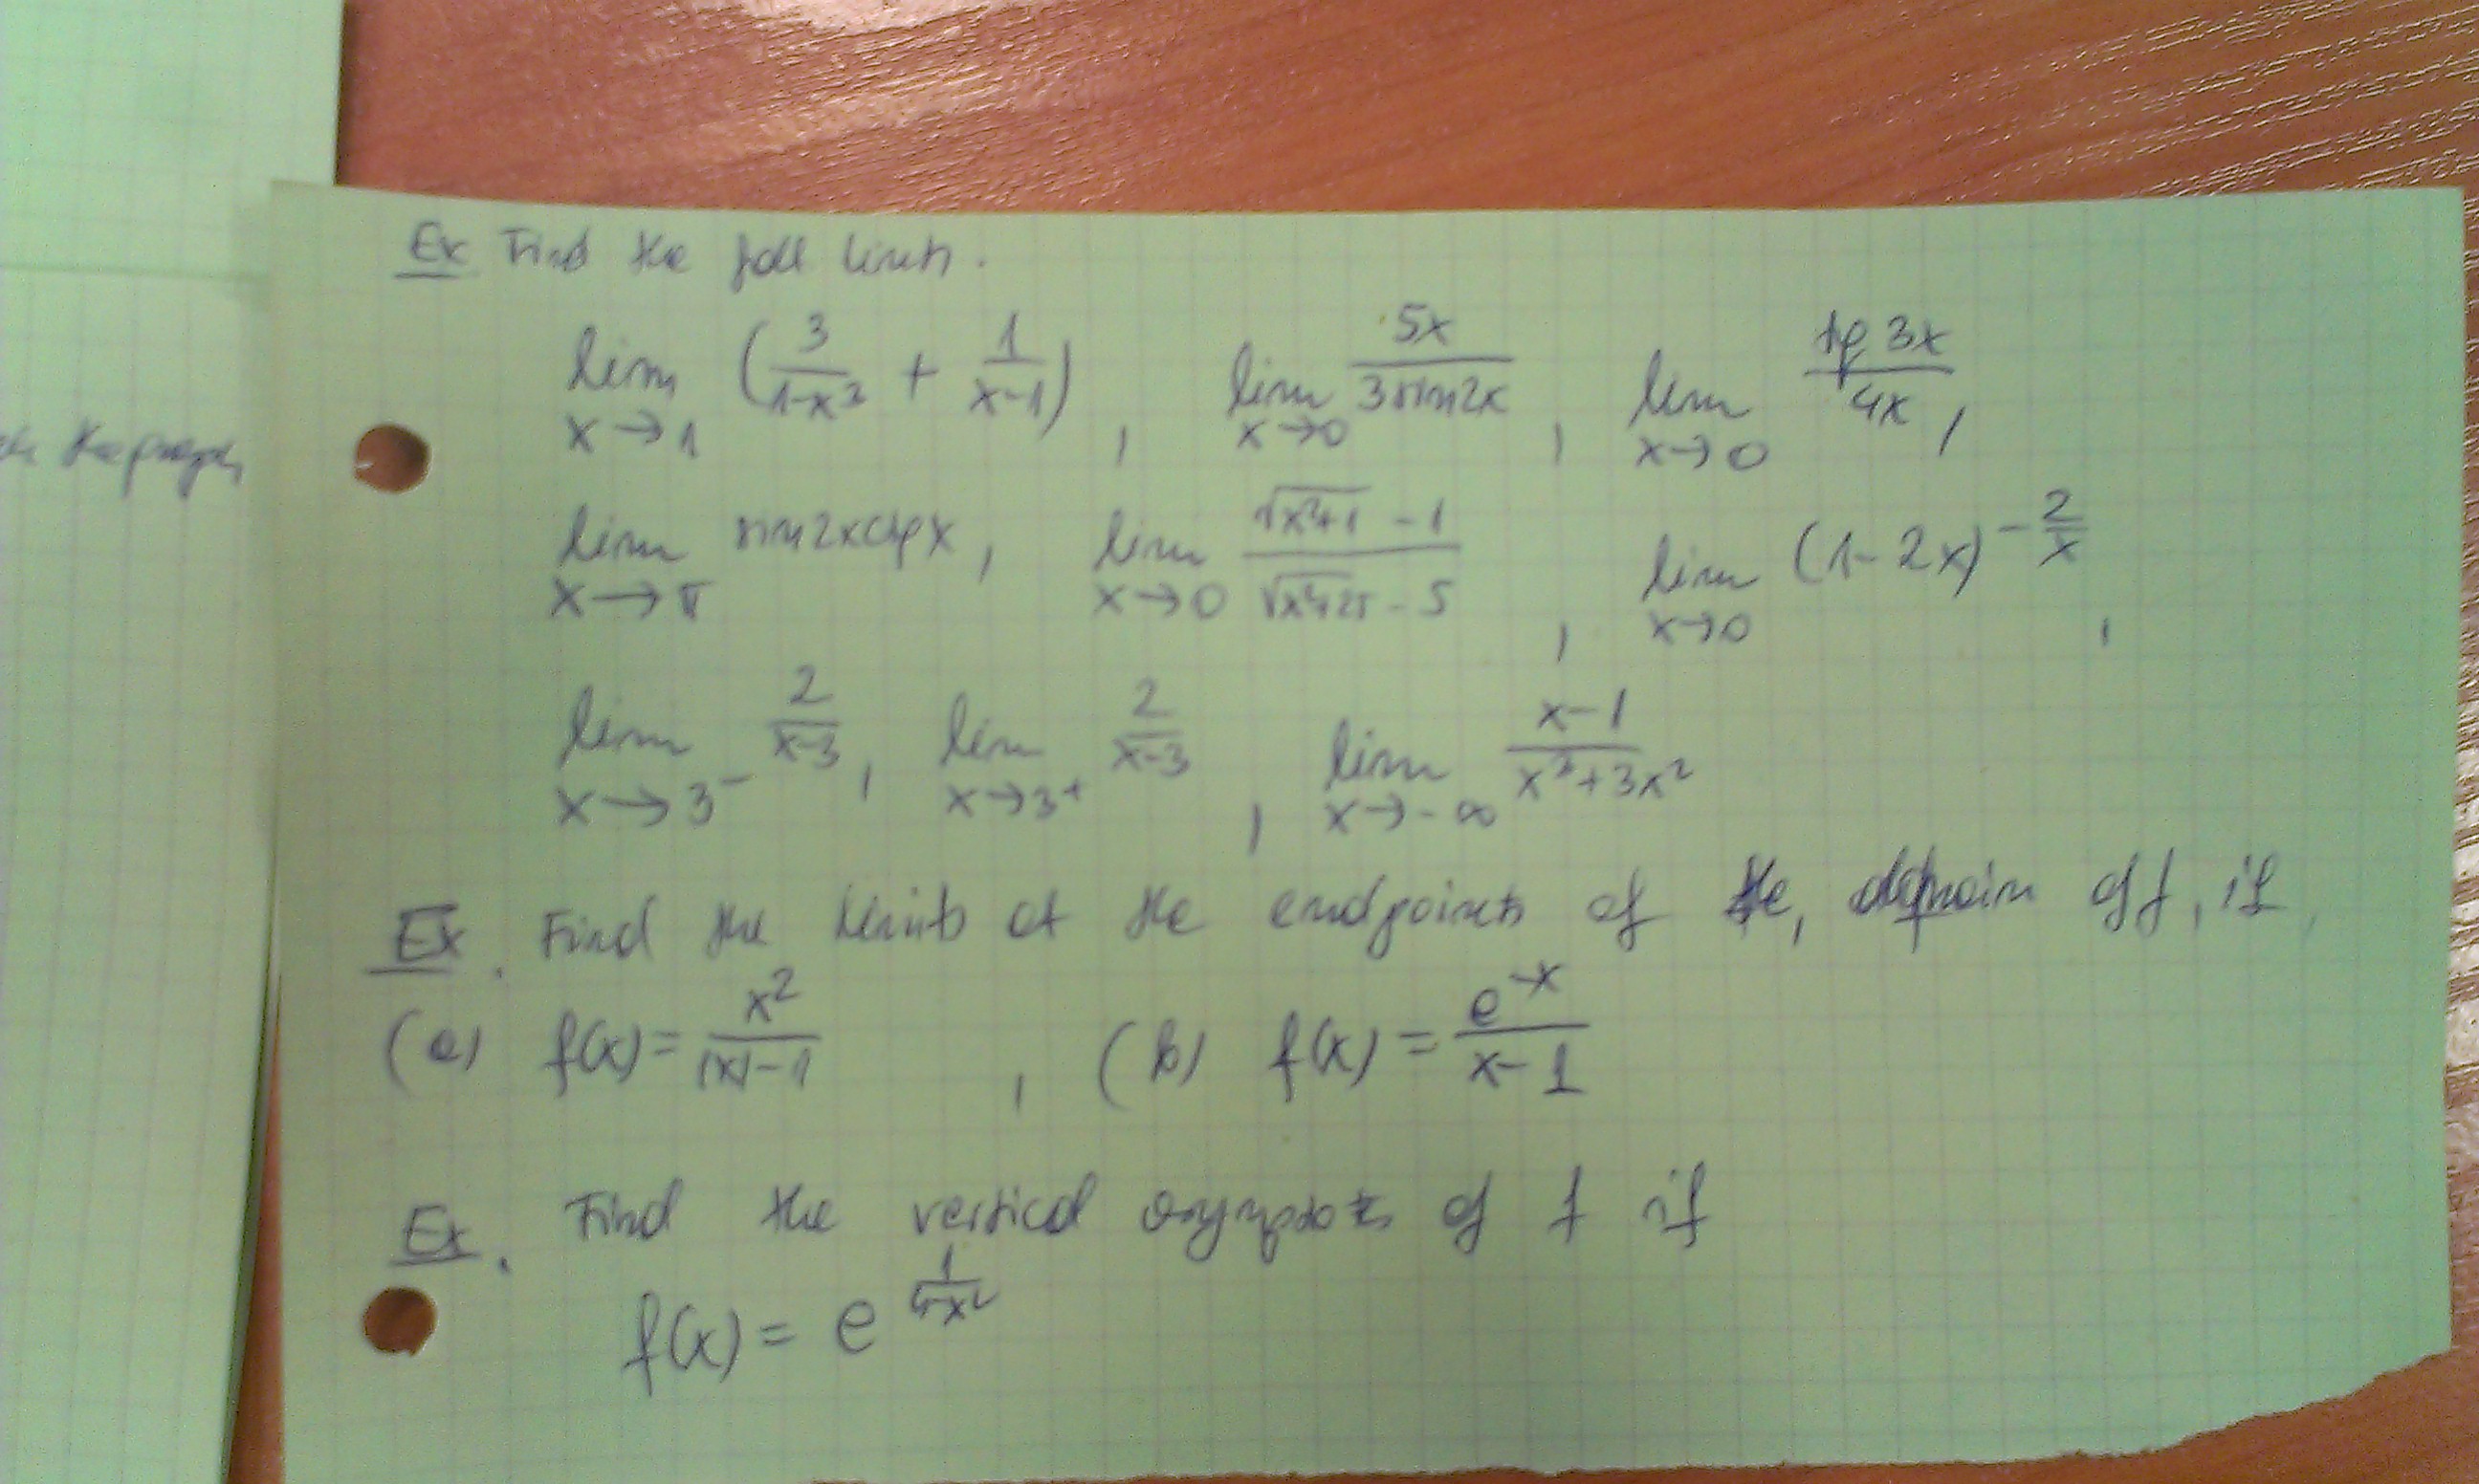 Ex Find the foll limits.
lim x→1 (3/(1-x²) + 1/(x-1)), lim x→0 5x/(3sin2x), lim x→0 tg3x/4x,
lim x→π sin2xctgx, lim x→0 (√(x²+1) - 1)/(√(x²+25) - 5), lim x→0 (1-2x)^(-2/x),
lim x→3⁻ 2/(x-3), lim x→3⁺ 2/(x-3), lim x→-∞ (x-1)/(x³+3x²)
Ex. Find the limits at the endpoints of the, domain of f, if
(a) f(x) = x²/(|x|-1), (b) f(x) = e^(-x)/(x-1)
Ex. Find the vertical asymptotes of f if
f(x) = e^(1/(4-x²))